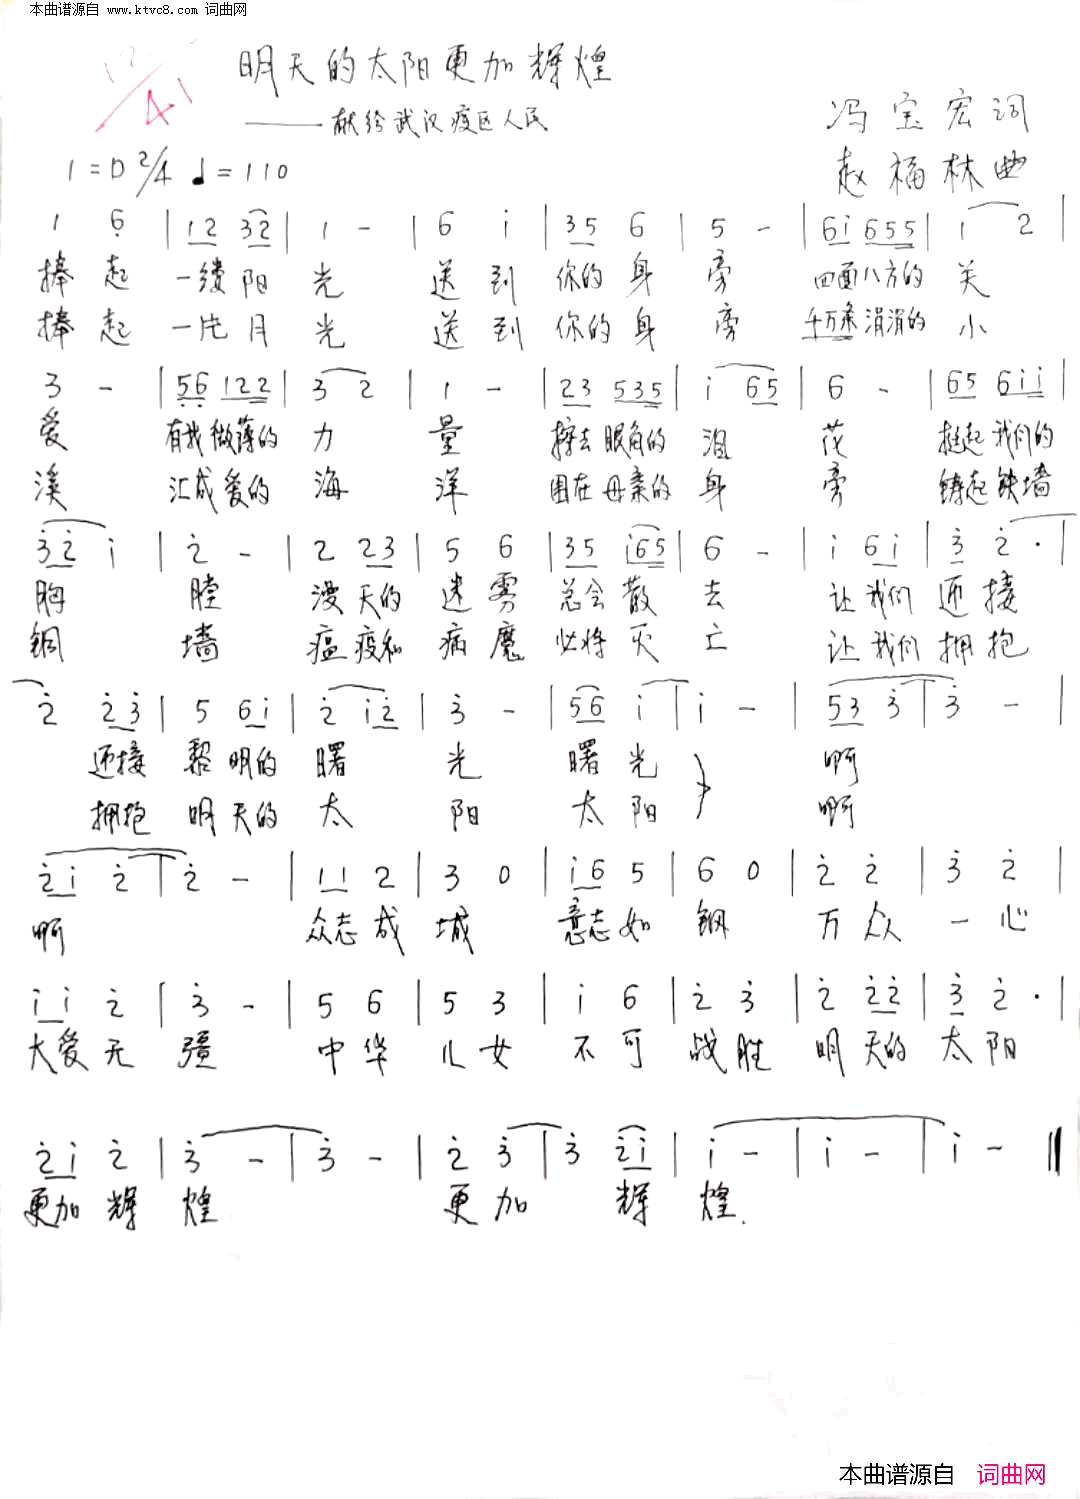 本曲谱源自 www.ktvc8.com 词曲网
明天的太阳更加辉煌
——献给武汉疫区人民
冯宝宏词
1=D 2/4 ♩=110
赵福林曲
1 6̣ | 12 32 | 1 - | 6 i | 35 6 | 5 - | 6i 655 | i 2 |
捧起 一缕阳光 送到 你的身旁 四面八方的关
捧起 一片月光 送到 你的身旁 千万条涓涓的小
3 - | 5̣6̣ 122 | 3 2 | 1 - | 23 535 | i 65 | 6 - | 65 6ii |
爱 有我微薄的力量 擦去眼角的泪花 挺起我们的
溪 汇成爱的海洋 围在母亲的身旁 铸起铁墙
3̇2̇ i | 2̇ - | 2 23 | 5 6 | 35 i65 | 6 - | i 6i | 3̇ 2̇· |
胸膛 漫天的迷雾总会散去 让我们迎接
铜墙 瘟疫和病魔必将灭亡 让我们拥抱
2̇ 2̇3̇ | 5 6i | 2̇ i2̇ | 3̇ - | 56 i | i - | 53 3̇ | 3̇ - |
迎接黎明的曙光 曙光 啊
拥抱明天的太阳 太阳 啊
2̇i 2̇ | 2̇ - | 11 2 | 3 0 | i6 5 | 6 0 | 2̇ 2̇ | 3̇ 2̇ |
啊 众志成城 意志如钢 万众一心
ii 2̇ | 3̇ - | 5 6 | 5 3 | i 6 | 2̇ 3̇ | 2̇ 2̇2̇ | 3̇ 2̇· |
大爱无疆 中华儿女不可战胜 明天的太阳
2̇i 2̇ | 3̇ - | 3̇ - | 2̇ 3̇ | 3̇ 2̇i | i - | i - | i - ‖
更加辉煌 更加 辉煌.
本曲谱源自 词曲网